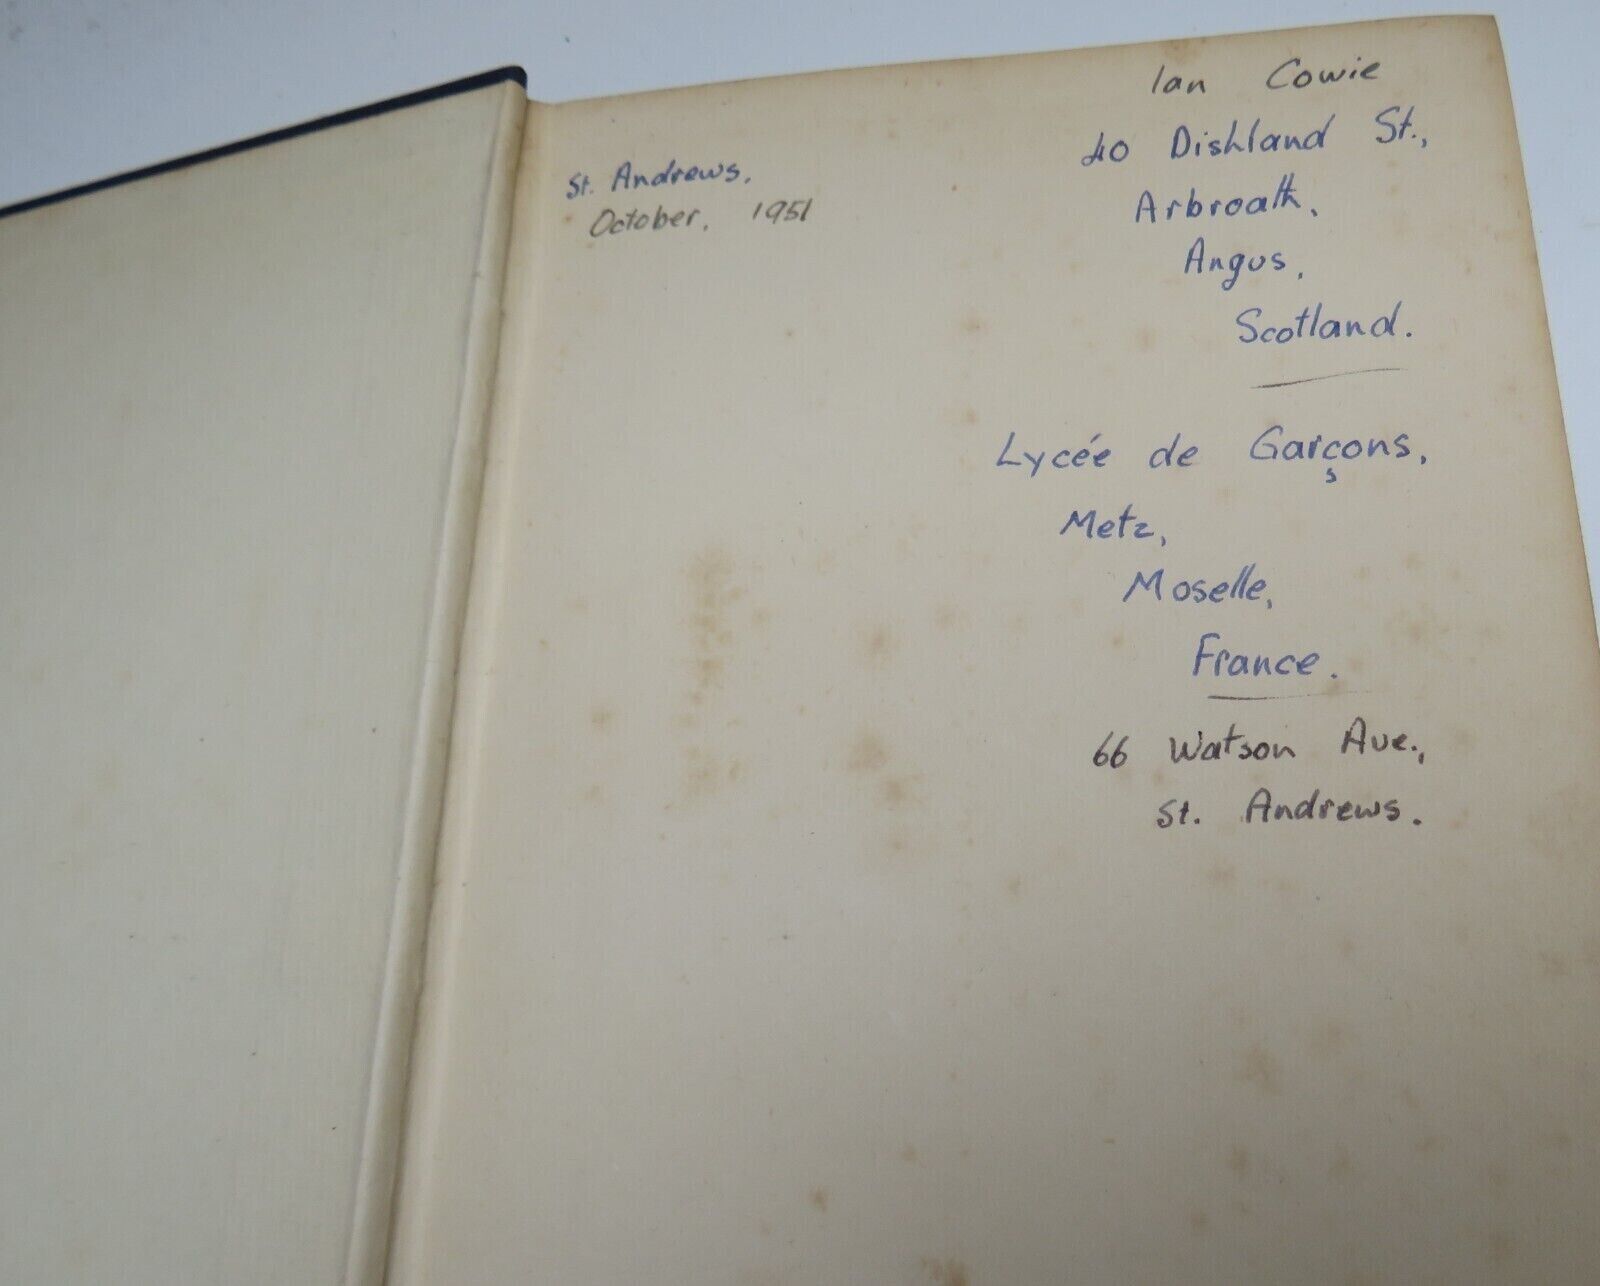 St. Andrews.
October, 1951
Ian Cowie
40 Dishland St.,
Arbroath,
Angus,
Scotland.
Lycée de Garçons,
Metz,
Moselle,
France.
66 Watson Ave.,
St. Andrews.